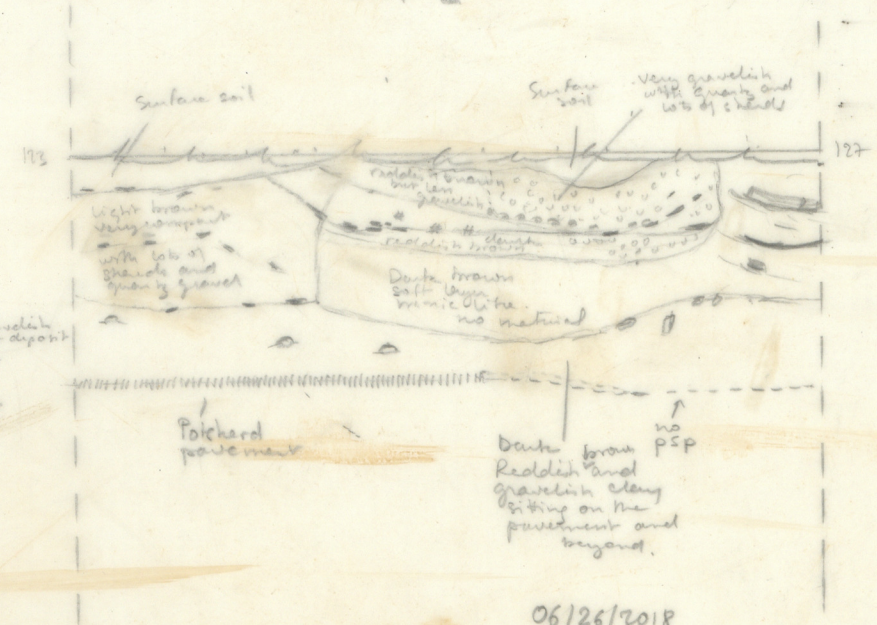 Surface soil
Surface
soil
very gravelish
with quartz and
lots of sherds
123
127
reddish brown
but less
gravelish
light brown
very compact
with lots of
sherds and
quartz gravel
reddish brown
Dark brown
soft layer
no material
deposit
Potsherd
pavement
no
psp
Dark brown
Reddish and
gravelish clay
sitting on the
pavement and
beyond.
06/26/2018